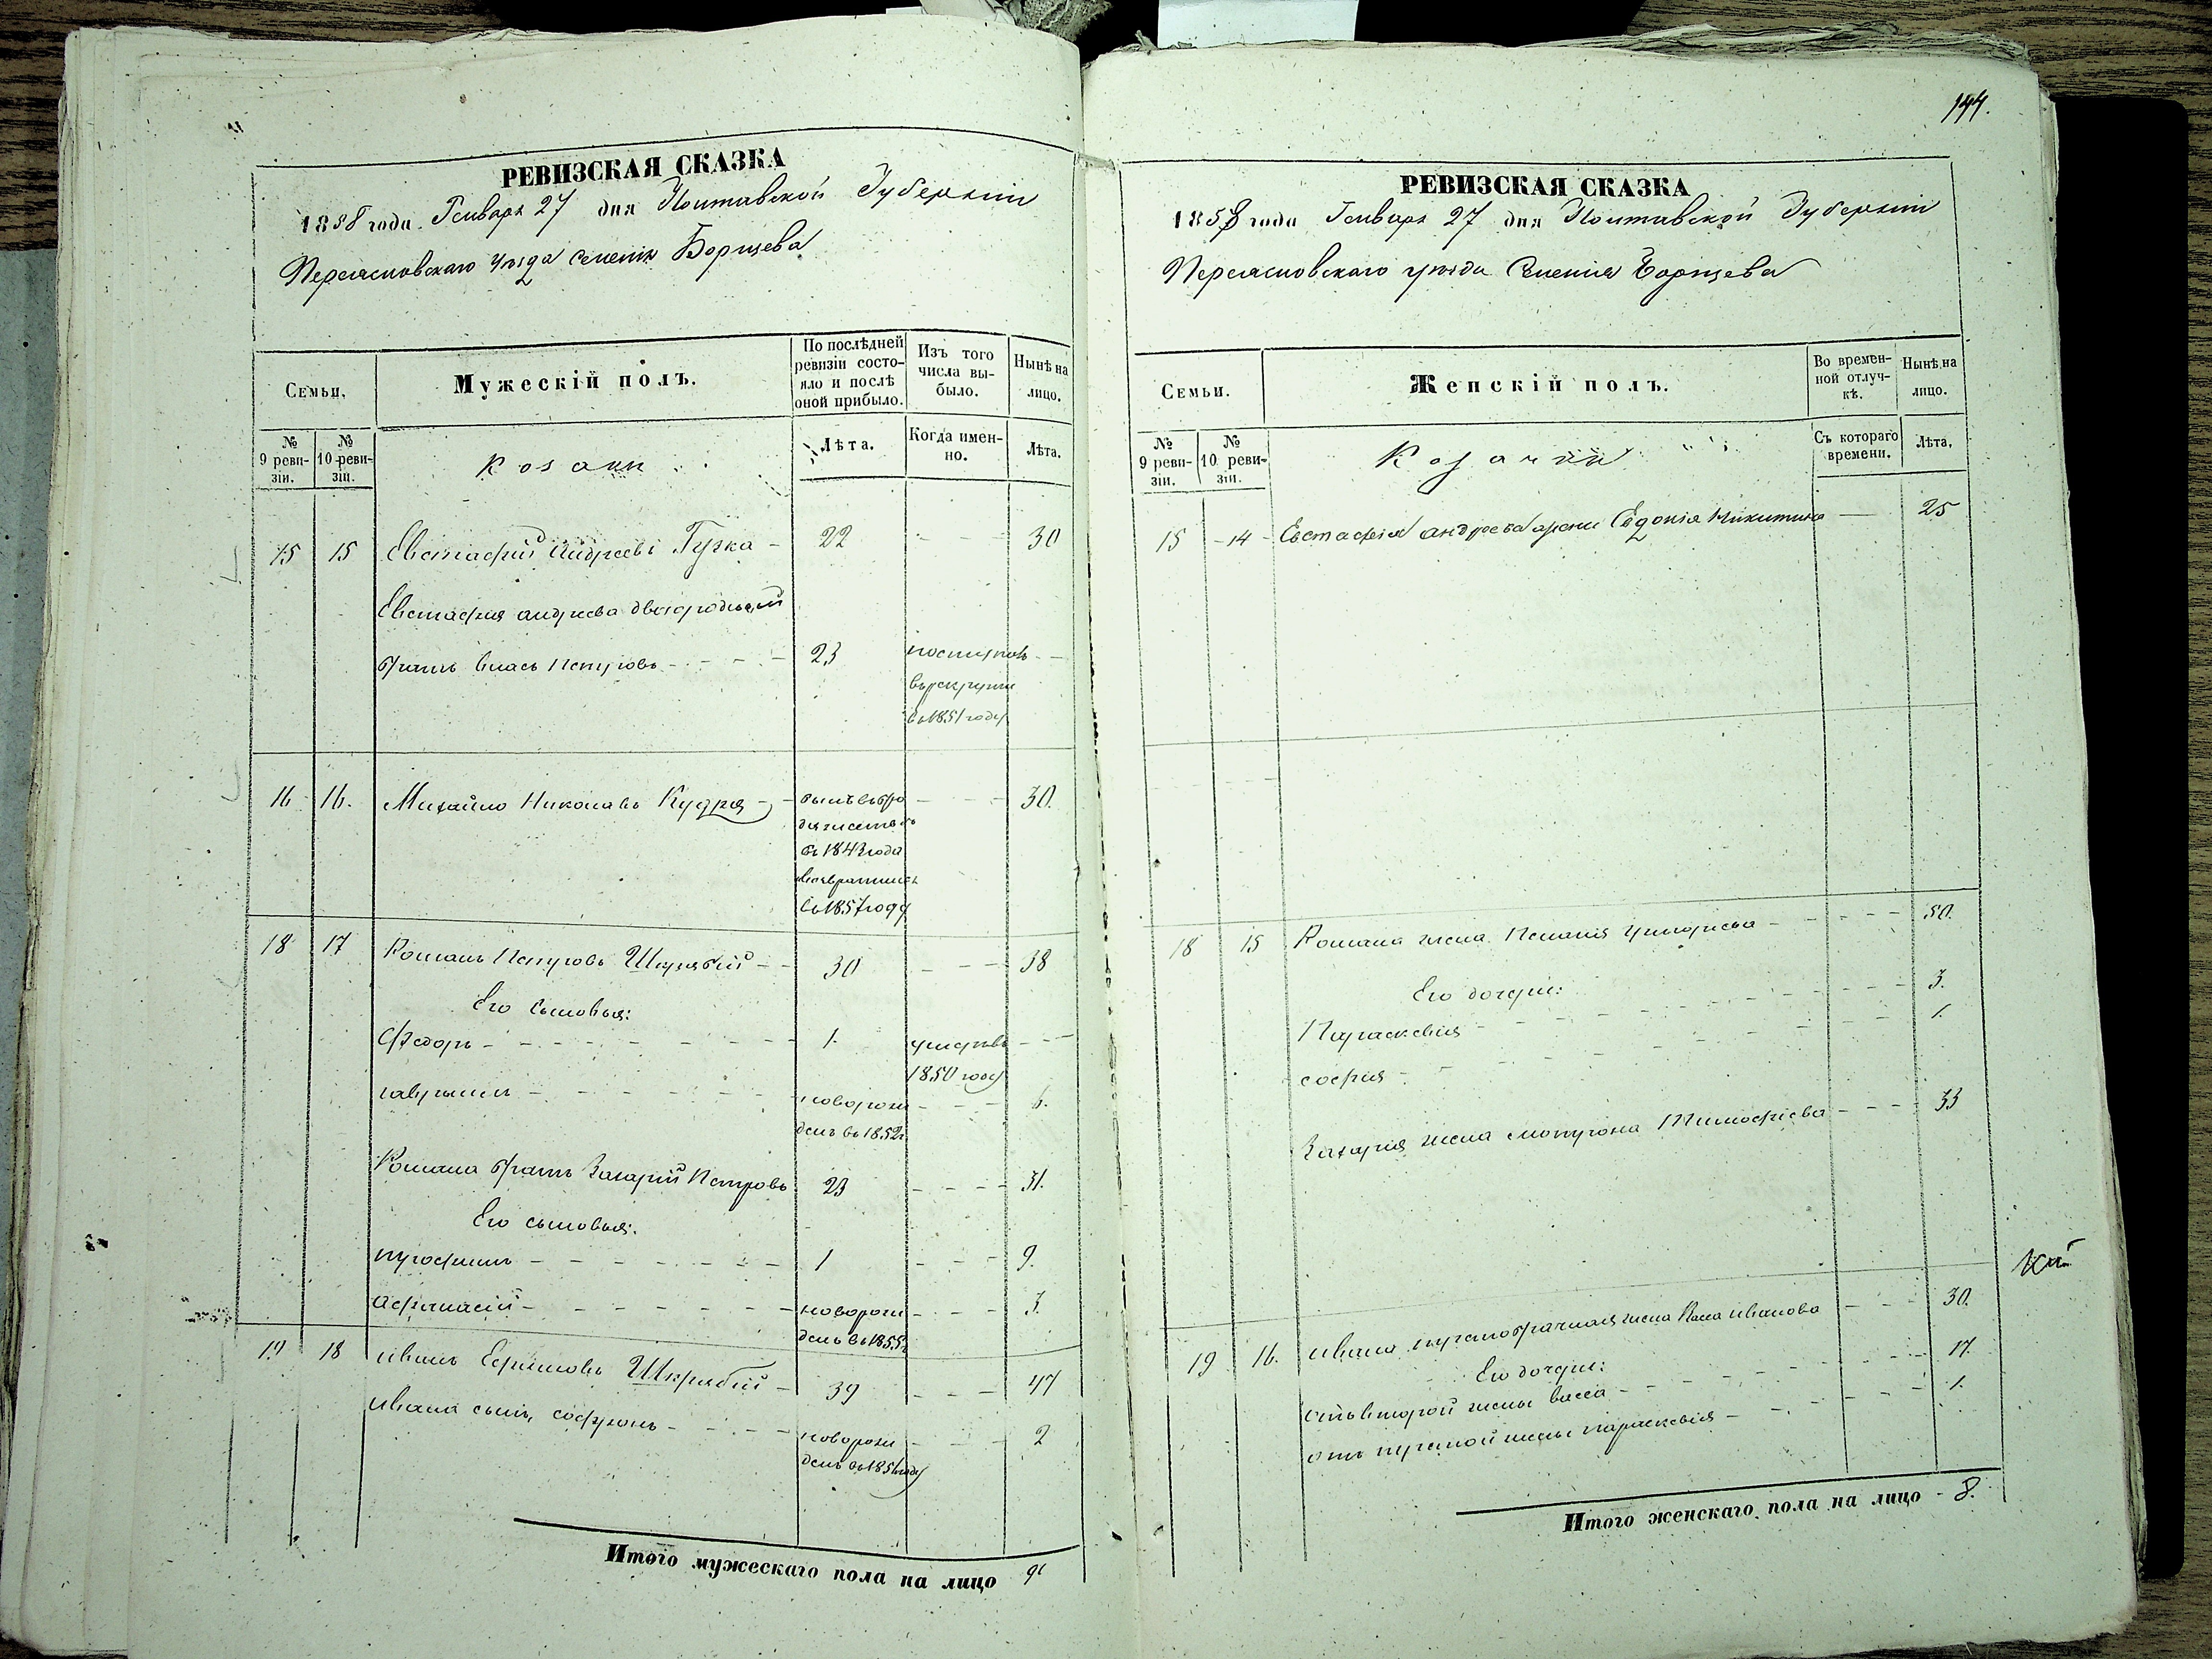 РЕВИЗСКАЯ СКАЗКА
1858 года Генваря 27 дня Полтавской Губернии
Переясловскаго уѣзда селенія Борщева
Семьи.
Мужескій полъ.
По послѣдней ревизіи состояло и послѣ оной прибыло.
Изъ того числа выбыло.
Нынѣ на лицо.
№ 9 ревизіи.
№ 10 ревизіи.
Козаки
Лѣта.
Когда именно.
Лѣта.
15 15 Евстафій Андреевъ Гузка 22 30
Евстафия андреева двоюродный
братъ власъ Петровъ 23 поступилъ
въ рекруты
въ 1851 году
16 16. Михайло Николаевъ Кудря былъ въ бро 30.
дяжествѣ
съ 1843 года
возвратился
въ 1857 году
18 17 Романъ Петровъ Шкрябій 30 38
Его сыновья:
Федоръ 1. умеръ въ
1850 году
гаврыилъ новорож 6.
денъ въ 1852 г.
Романа братъ Захарій Петровъ 23 31.
Его сыновья:
трофимъ 1 9.
Афанасій новорож 3.
денъ въ 1855 г.
19 18 иванъ Ефимовъ Шкрябій 39 47
ивана сынъ, софронъ новорож 2
денъ въ году
Итого мужескаго пола на лицо 9
144.
РЕВИЗСКАЯ СКАЗКА
1858 года Генваря 27 дня Полтавской Губерніи
Переясловскаго уѣзда Селенія Борщева
Семьи.
Женскій полъ.
Во временной отлучкѣ.
Нынѣ на лицо.
№ 9 ревизіи.
№ 10 ревизіи.
Козачки
Съ котораго времени.
Лѣта.
15 14 Евстафія андреева жена Евдокія Никитина 25
18 15 Романа жена Пелагія Григорьева 50.
Его дочери:
Параскевія 3.
софия 1.
Захарія жена Матрона Тимофѣева 33
19 16. ивана жена иванова 30.
Его дочери:
отъ второй жены васса 17.
отъ жены параскевія 1.
Итого женскаго пола на лицо 8.